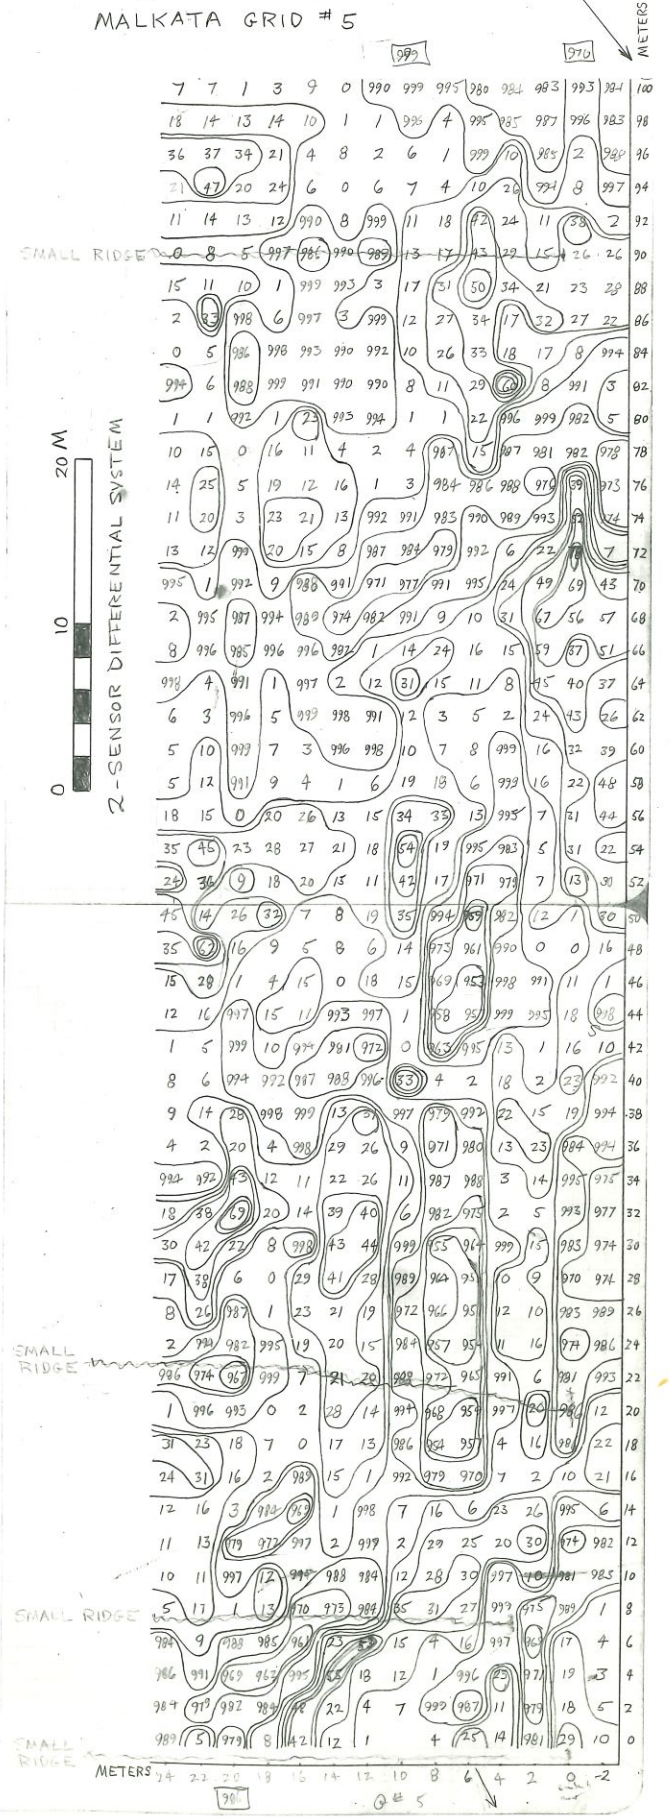 MALKATA GRID #5
METERS
976
7 7 1 3 9 0 990 999 995 980 984 983 993 984 100
18 14 13 14 10 1 1 996 4 995 985 987 996 983 98
36 37 34 21 4 8 2 6 1 999 10 985 2 988 96
21 47 20 24 6 0 6 7 4 10 26 994 8 997 94
11 14 13 12 990 8 999 11 18 42 24 11 38 2 92
SMALL RIDGE 0 8 5 997 986 990 989 13 17 43 29 15 26 26 90
15 11 10 1 999 993 3 17 31 50 34 21 23 28 88
2 33 998 6 997 3 999 12 27 34 17 32 27 22 86
0 5 986 998 993 990 992 10 26 33 18 17 8 994 84
994 6 988 999 991 990 990 8 11 29 60 8 991 3 82
1 1 992 1 23 993 994 1 1 22 996 999 982 5 80
10 15 0 16 11 4 2 4 987 15 987 981 982 978 78
14 25 5 19 12 16 1 3 984 986 988 976 39 973 76
11 20 3 23 21 13 992 991 983 990 989 993 974 74
13 12 999 20 15 8 987 984 979 992 6 22 7 72
995 1 992 9 988 991 971 977 991 995 24 49 69 43 70
2 995 987 994 989 974 982 991 9 10 31 67 56 57 68
8 996 985 996 996 982 1 14 24 16 15 59 37 51 66
998 4 991 1 997 2 12 31 15 11 8 45 40 37 64
6 3 996 5 999 998 991 12 3 5 2 24 43 26 62
5 10 999 7 3 996 998 10 7 8 999 16 32 39 60
5 12 991 9 4 1 6 19 18 6 999 16 22 48 58
18 15 0 20 26 13 15 34 33 13 995 7 31 44 56
35 45 23 28 27 21 18 54 19 995 983 5 31 22 54
24 36 9 18 20 13 11 42 17 971 979 7 13 30 52
45 14 26 32 7 8 19 35 994 959 982 12 1 30 50
35 62 16 9 5 8 6 14 973 961 990 0 0 16 48
15 28 1 4 15 0 18 15 969 953 998 991 11 1 46
12 16 997 15 11 993 997 1 958 999 995 18 998 44
1 5 999 10 994 981 972 0 963 995 13 1 16 10 42
8 6 994 992 987 988 996 33 4 2 18 2 23 992 40
9 14 28 998 999 13 31 997 979 992 22 15 19 994 38
4 2 20 4 998 29 26 9 971 980 13 23 984 994 36
994 992 43 12 11 22 26 11 987 988 3 14 995 975 34
18 38 69 20 14 39 40 6 982 975 2 5 993 977 32
30 42 22 8 998 43 44 999 955 964 999 15 983 974 30
17 38 6 0 29 41 28 989 964 10 9 970 974 28
8 26 987 1 23 21 19 972 966 12 10 983 989 26
SMALL
RIDGE
2 994 982 995 19 20 15 984 957 11 16 974 986 24
986 974 967 999 7 21 20 988 972 965 991 6 981 993 22
1 996 993 0 2 28 14 994 968 954 997 20 986 12 20
31 23 18 7 0 17 13 986 954 957 4 16 22 18
24 31 16 2 989 15 1 992 979 970 7 2 10 21 16
12 16 3 984 969 1 998 7 16 6 23 26 995 6 14
11 13 979 972 997 2 999 2 29 25 20 30 974 982 12
10 11 997 12 995 988 984 12 28 30 997 10 981 983 10
SMALL RIDGE 5 17 1 13 970 973 984 35 31 27 999 975 989 1 8
984 9 988 985 961 23 15 4 16 997 17 4 6
986 991 969 962 995 18 12 1 996 23 971 19 3 4
984 979 982 984 22 4 7 999 987 11 979 18 5 2
SMALL
RIDGE
989 5 979 8 42 12 1 4 25 14 981 29 10 0
METERS 24 22 20 18 16 14 12 10 8 6 4 2 0 -2
2-SENSOR DIFFERENTIAL SYSTEM
0 10 20 M